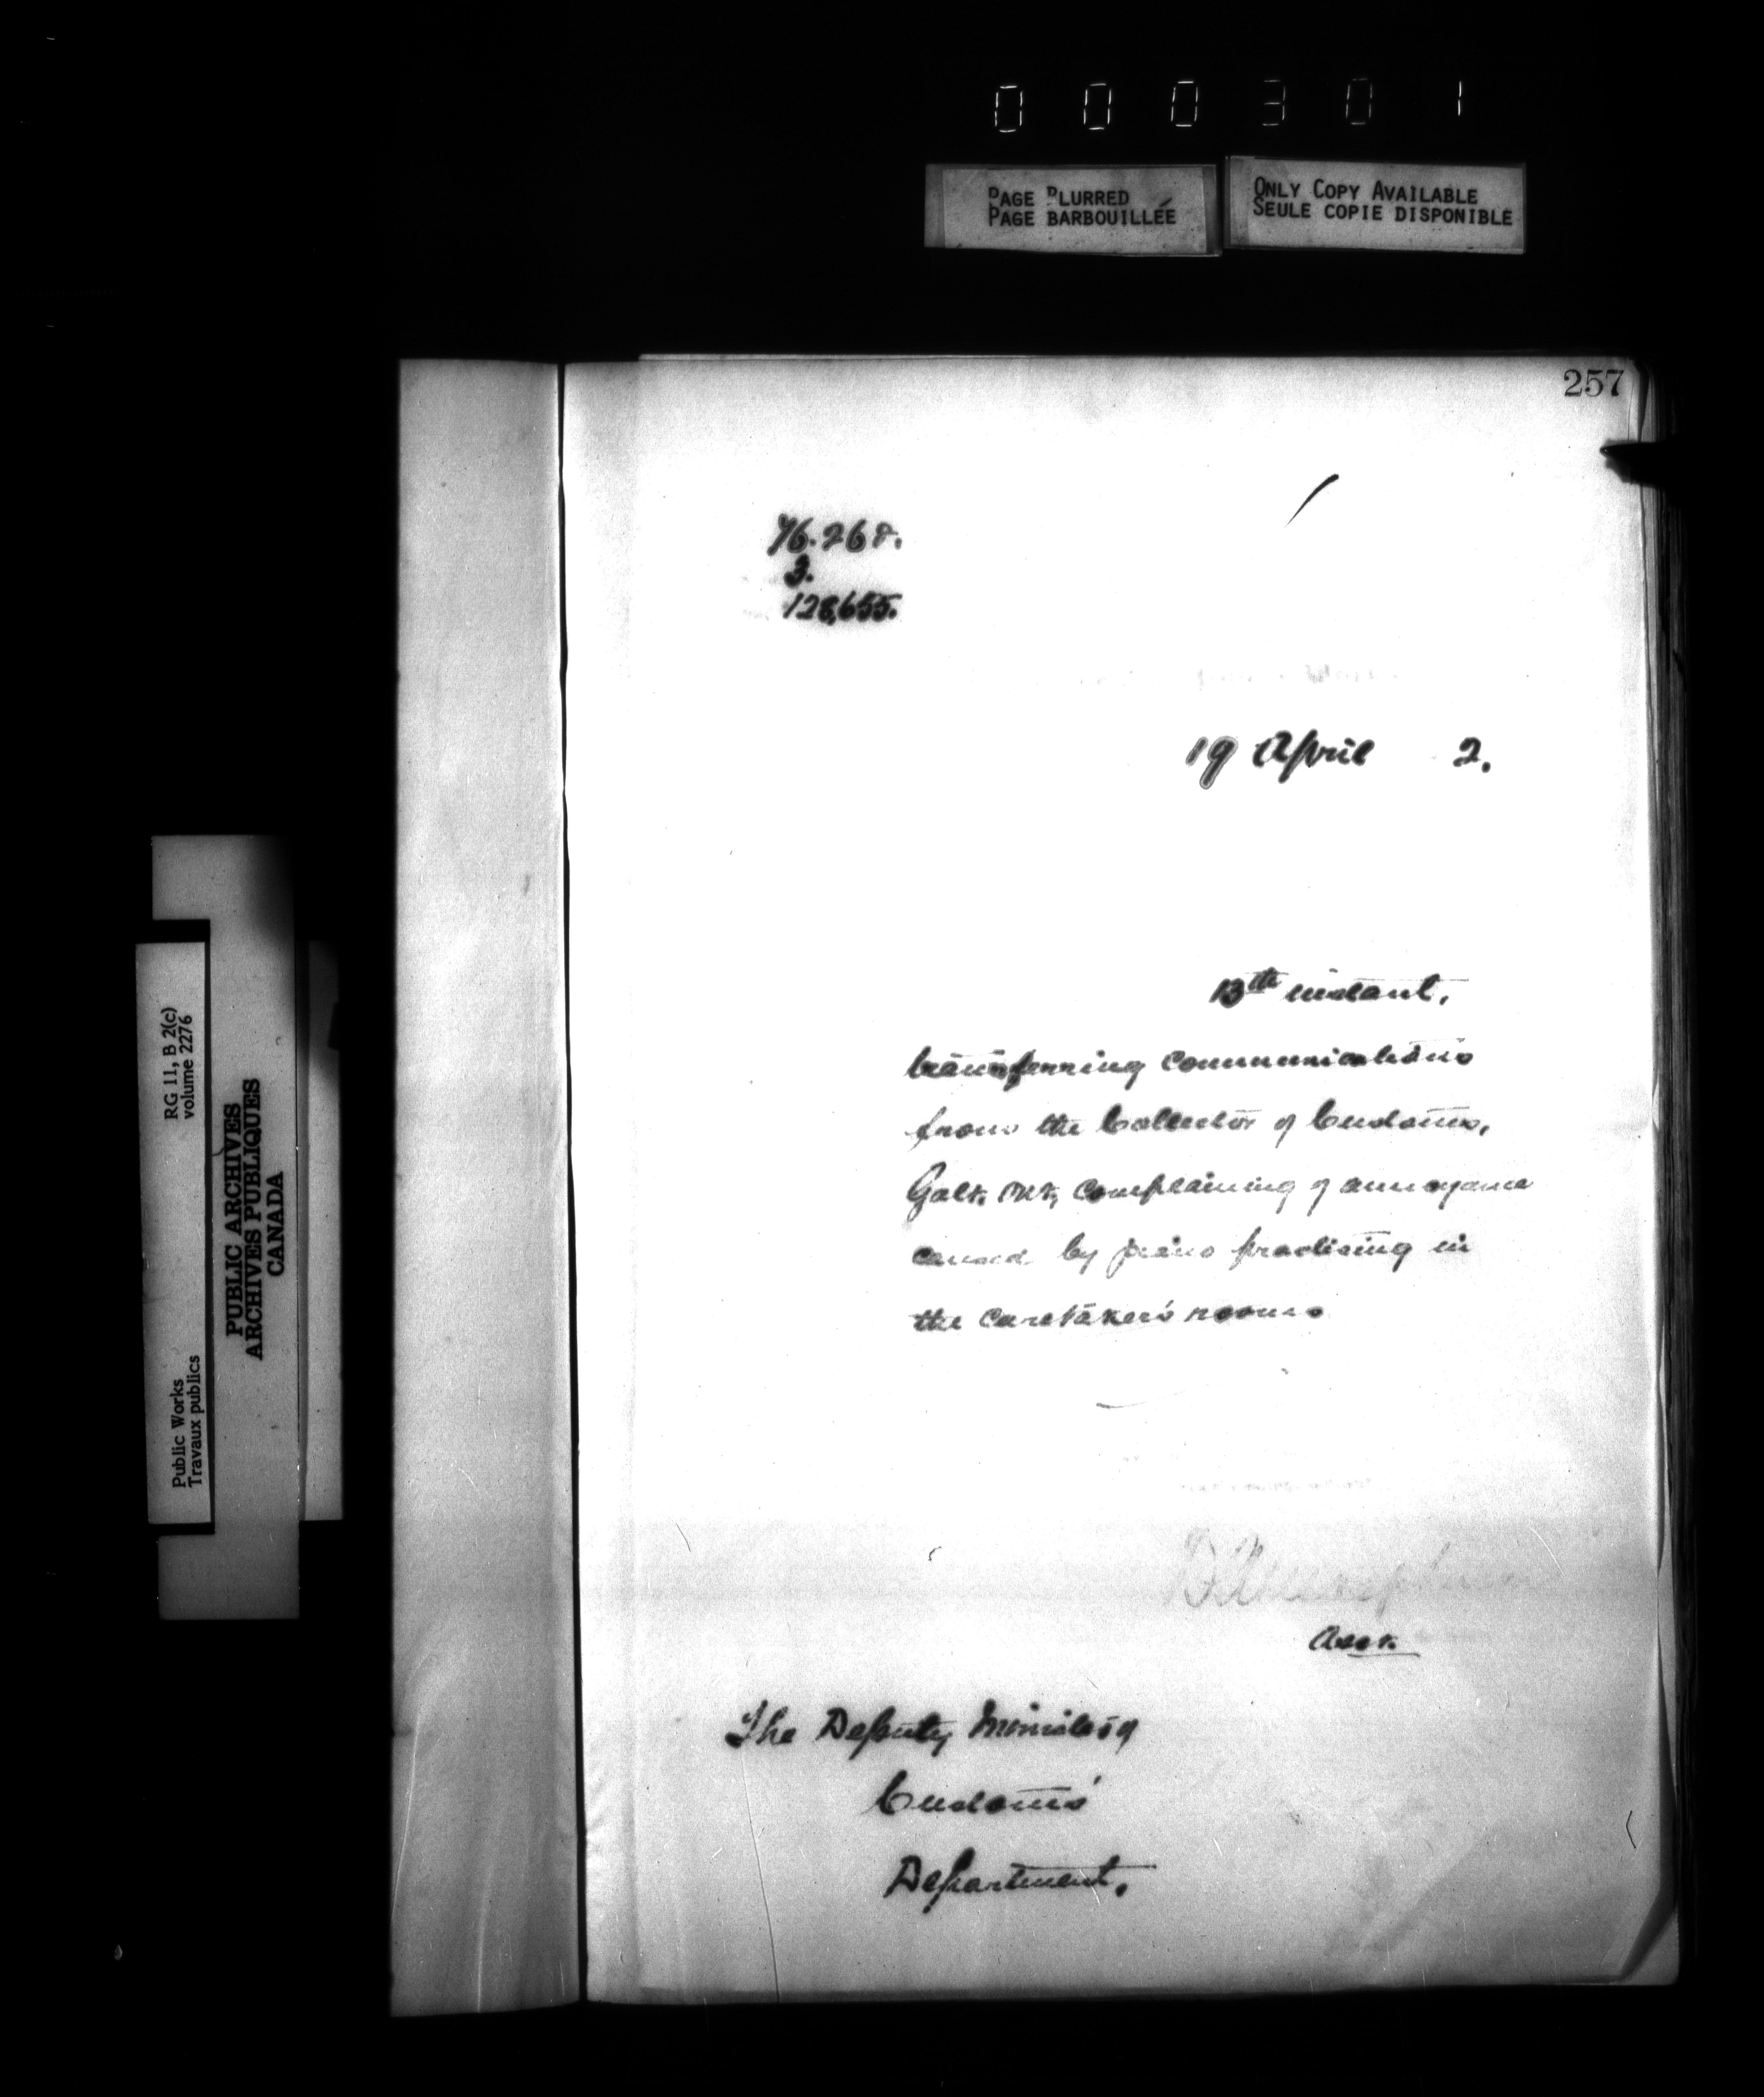 000301
PAGE BLURRED
PAGE BARBOUILLÉE
ONLY COPY AVAILABLE
SEULE COPIE DISPONIBLE
257
76.268.
3.
128,655.
19 April 2.
13th instant,
transferring communications
from the Collector of Customs,
Galt. Ont, complaining of annoyance
caused by piano practising in
the caretaker's rooms
The Deputy Minister of
Customs'
Department.
RG 11, B 2(c)
volume 2276
PUBLIC ARCHIVES
ARCHIVES PUBLIQUES
CANADA
Public Works
Travaux publics